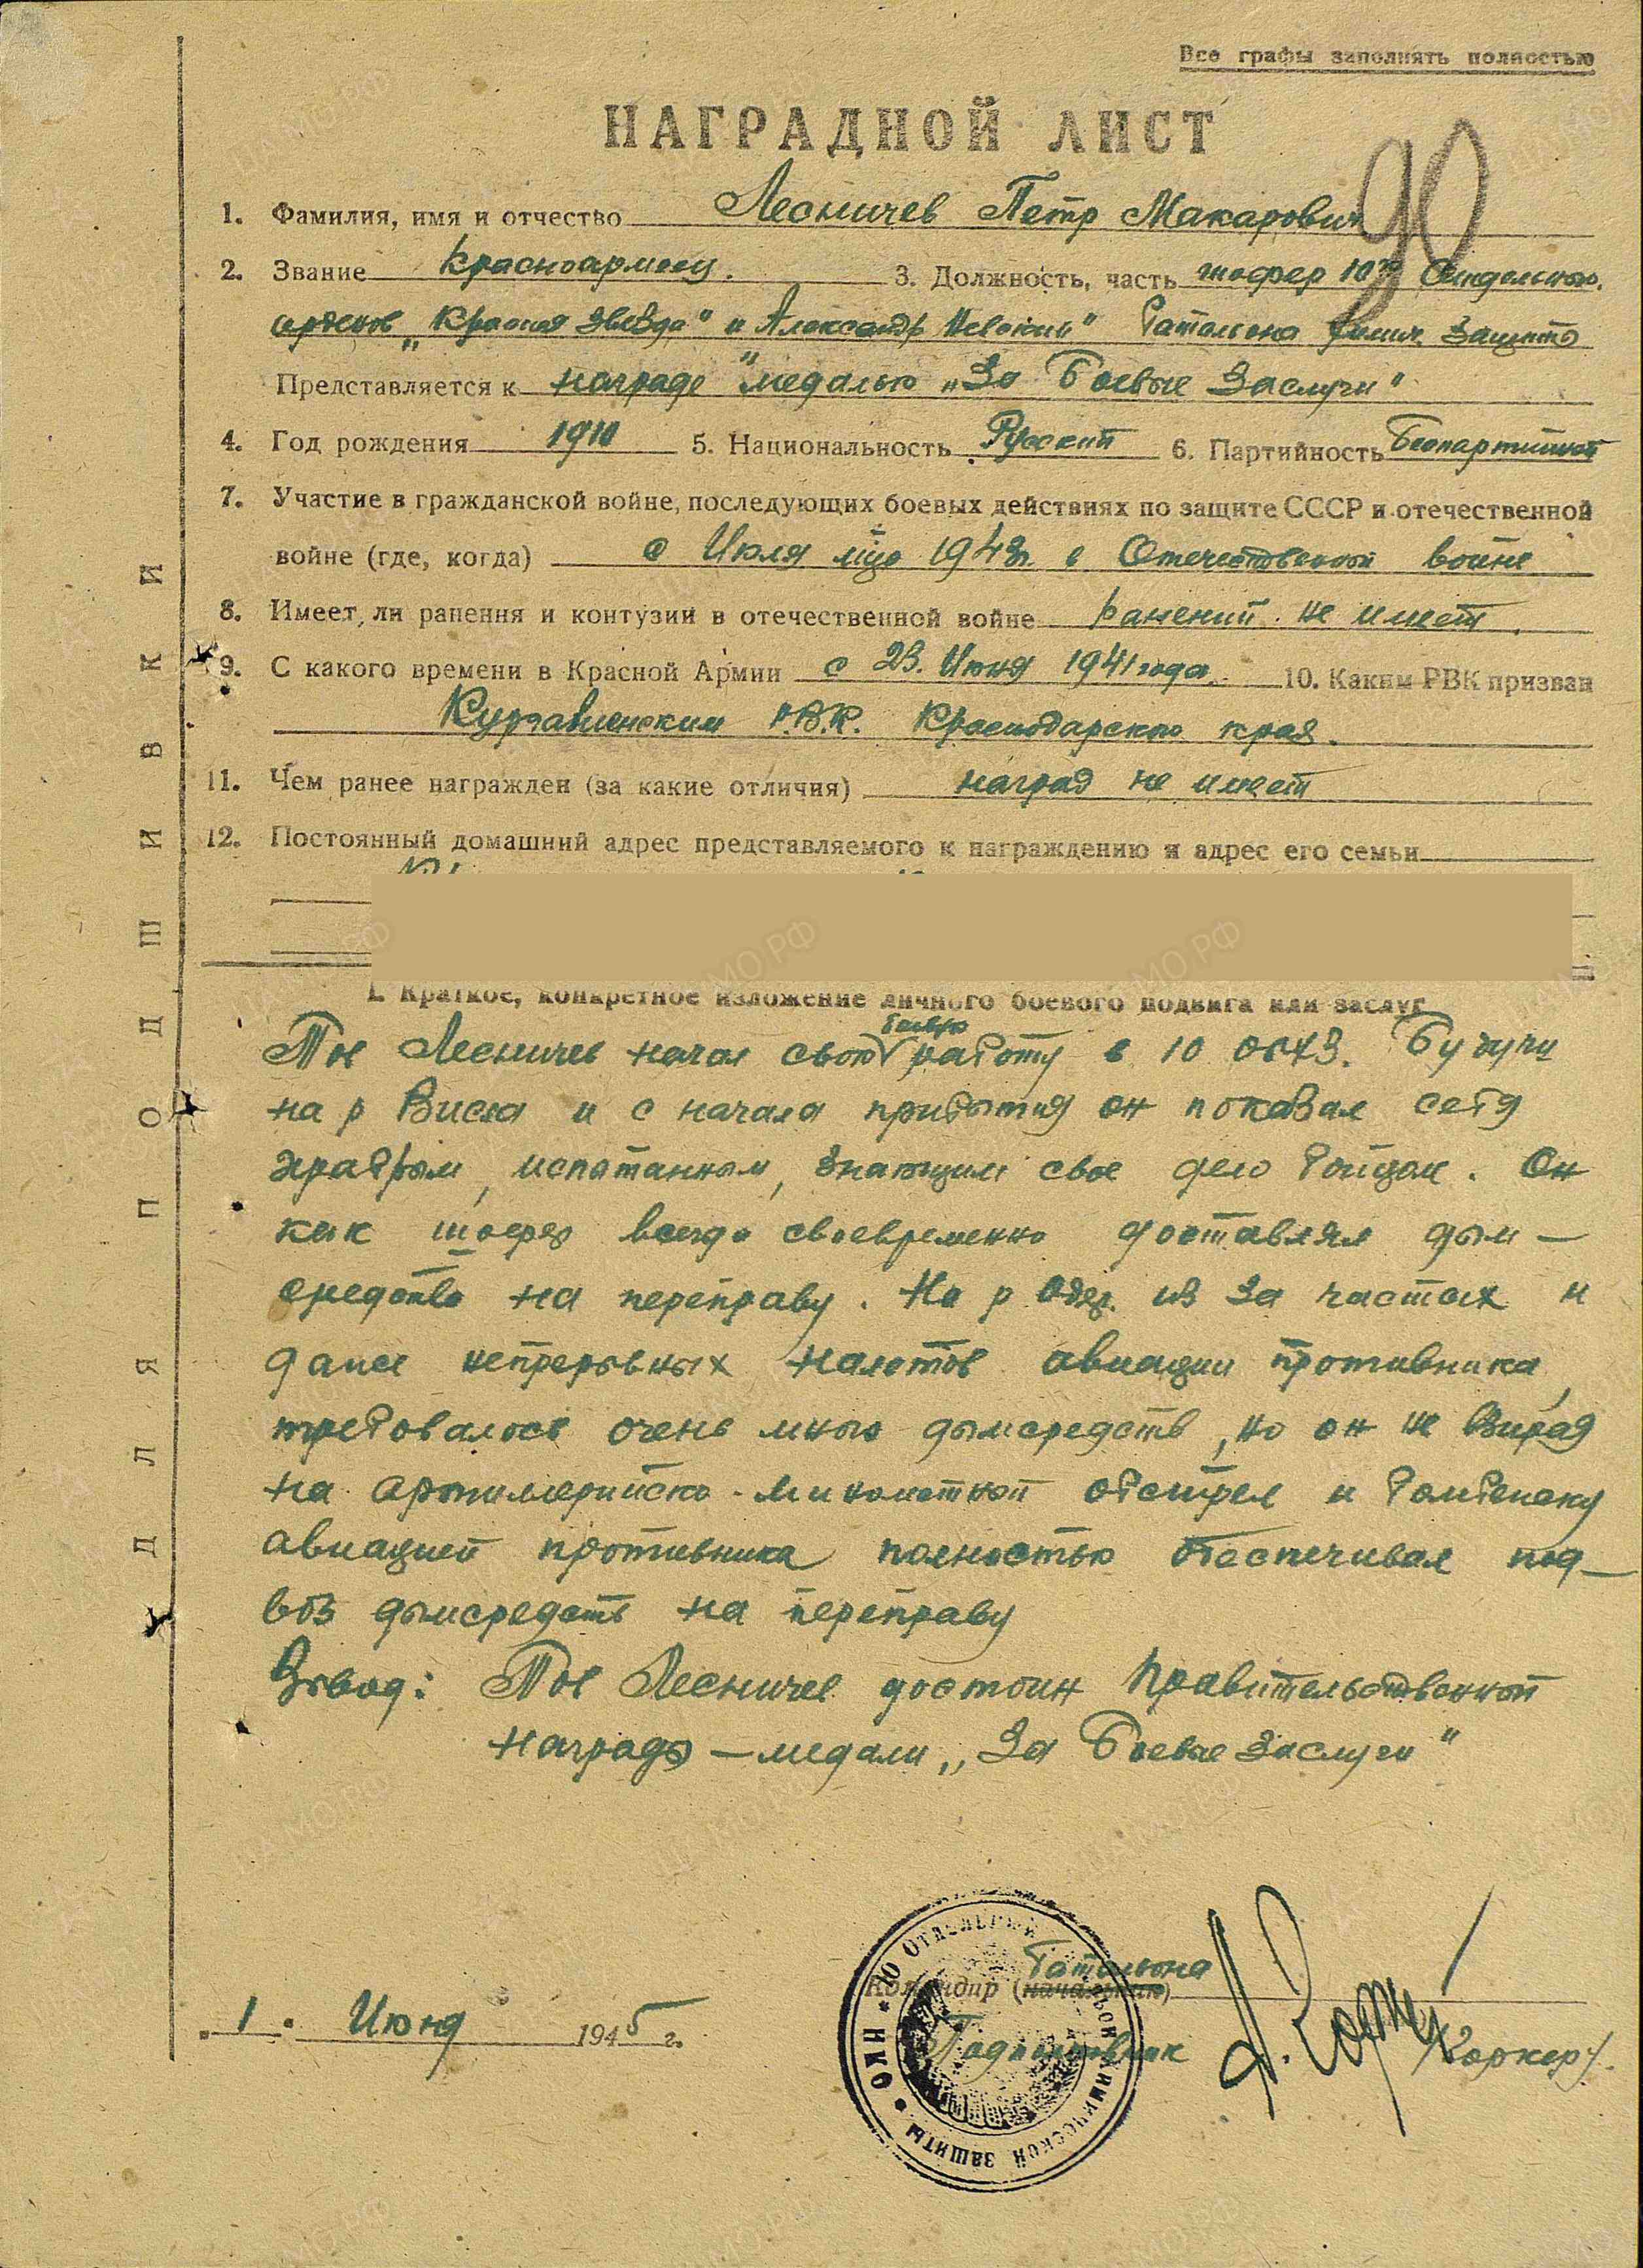 Все графы заполнять полностью
НАГРАДНОЙ ЛИСТ
90
1. Фамилия, имя и отчество Лесничев Петр Макарович
2. Звание Красноармеец. 3. Должность, часть шофер 10го Отдельного
орденов „Красная Звезда" и „Александр Невский" батальона химич. защиты
Представляется к награде медалью „За Боевые Заслуги"
4. Год рождения 1910 5. Национальность Русский 6. Партийность Беспартийной
7. Участие в гражданской войне, последующих боевых действиях по защите СССР и отечественной
войне (где, когда) с Июля м-ца 1943г. в Отечественной войне
8. Имеет ли ранения и контузии в отечественной войне ранений не имеет.
9. С какого времени в Красной Армии с 23. Июня 1941 года. 10. Каким РВК призван
Курсавшенским Р.В.К. Краснодарского края.
11. Чем ранее награжден (за какие отличия) наград не имеет
12. Постоянный домашний адрес представляемого к награждению и адрес его семьи
I. Краткое, конкретное изложение личного боевого подвига или заслуг
Тов Лесничев начал свою боевую работу в 10 ОБХЗ. Будучи
на р Висла и с начала прибытия он показал себя
храбрым, испытанным, знающим свое дело бойцом. Он
как шофер всегда своевременно доставлял дым-
средства на переправу. На р Одер. из за частых и
даже непрерывных налетов авиации противника,
требовалось очень много дымсредств, но он не взирая
на артиллерийско-минометной обстрел и бомбежку
авиацией противника полностью обеспечивал под-
воз дымсредств на переправу
Вывод: Тов Лесничев достоин Правительственной
награды - медали „За Боевые Заслуги"
Командир (начальник) батальона
Подполковник /Коркер/.
„1" Июня 1945 г.
НКО * 10 ОТДЕЛЬНЫЙ БАТАЛЬОН ХИМИЧЕСКОЙ ЗАЩИТЫ
ДЛЯ ПОДШИВКИ
ЦАМО.РФ